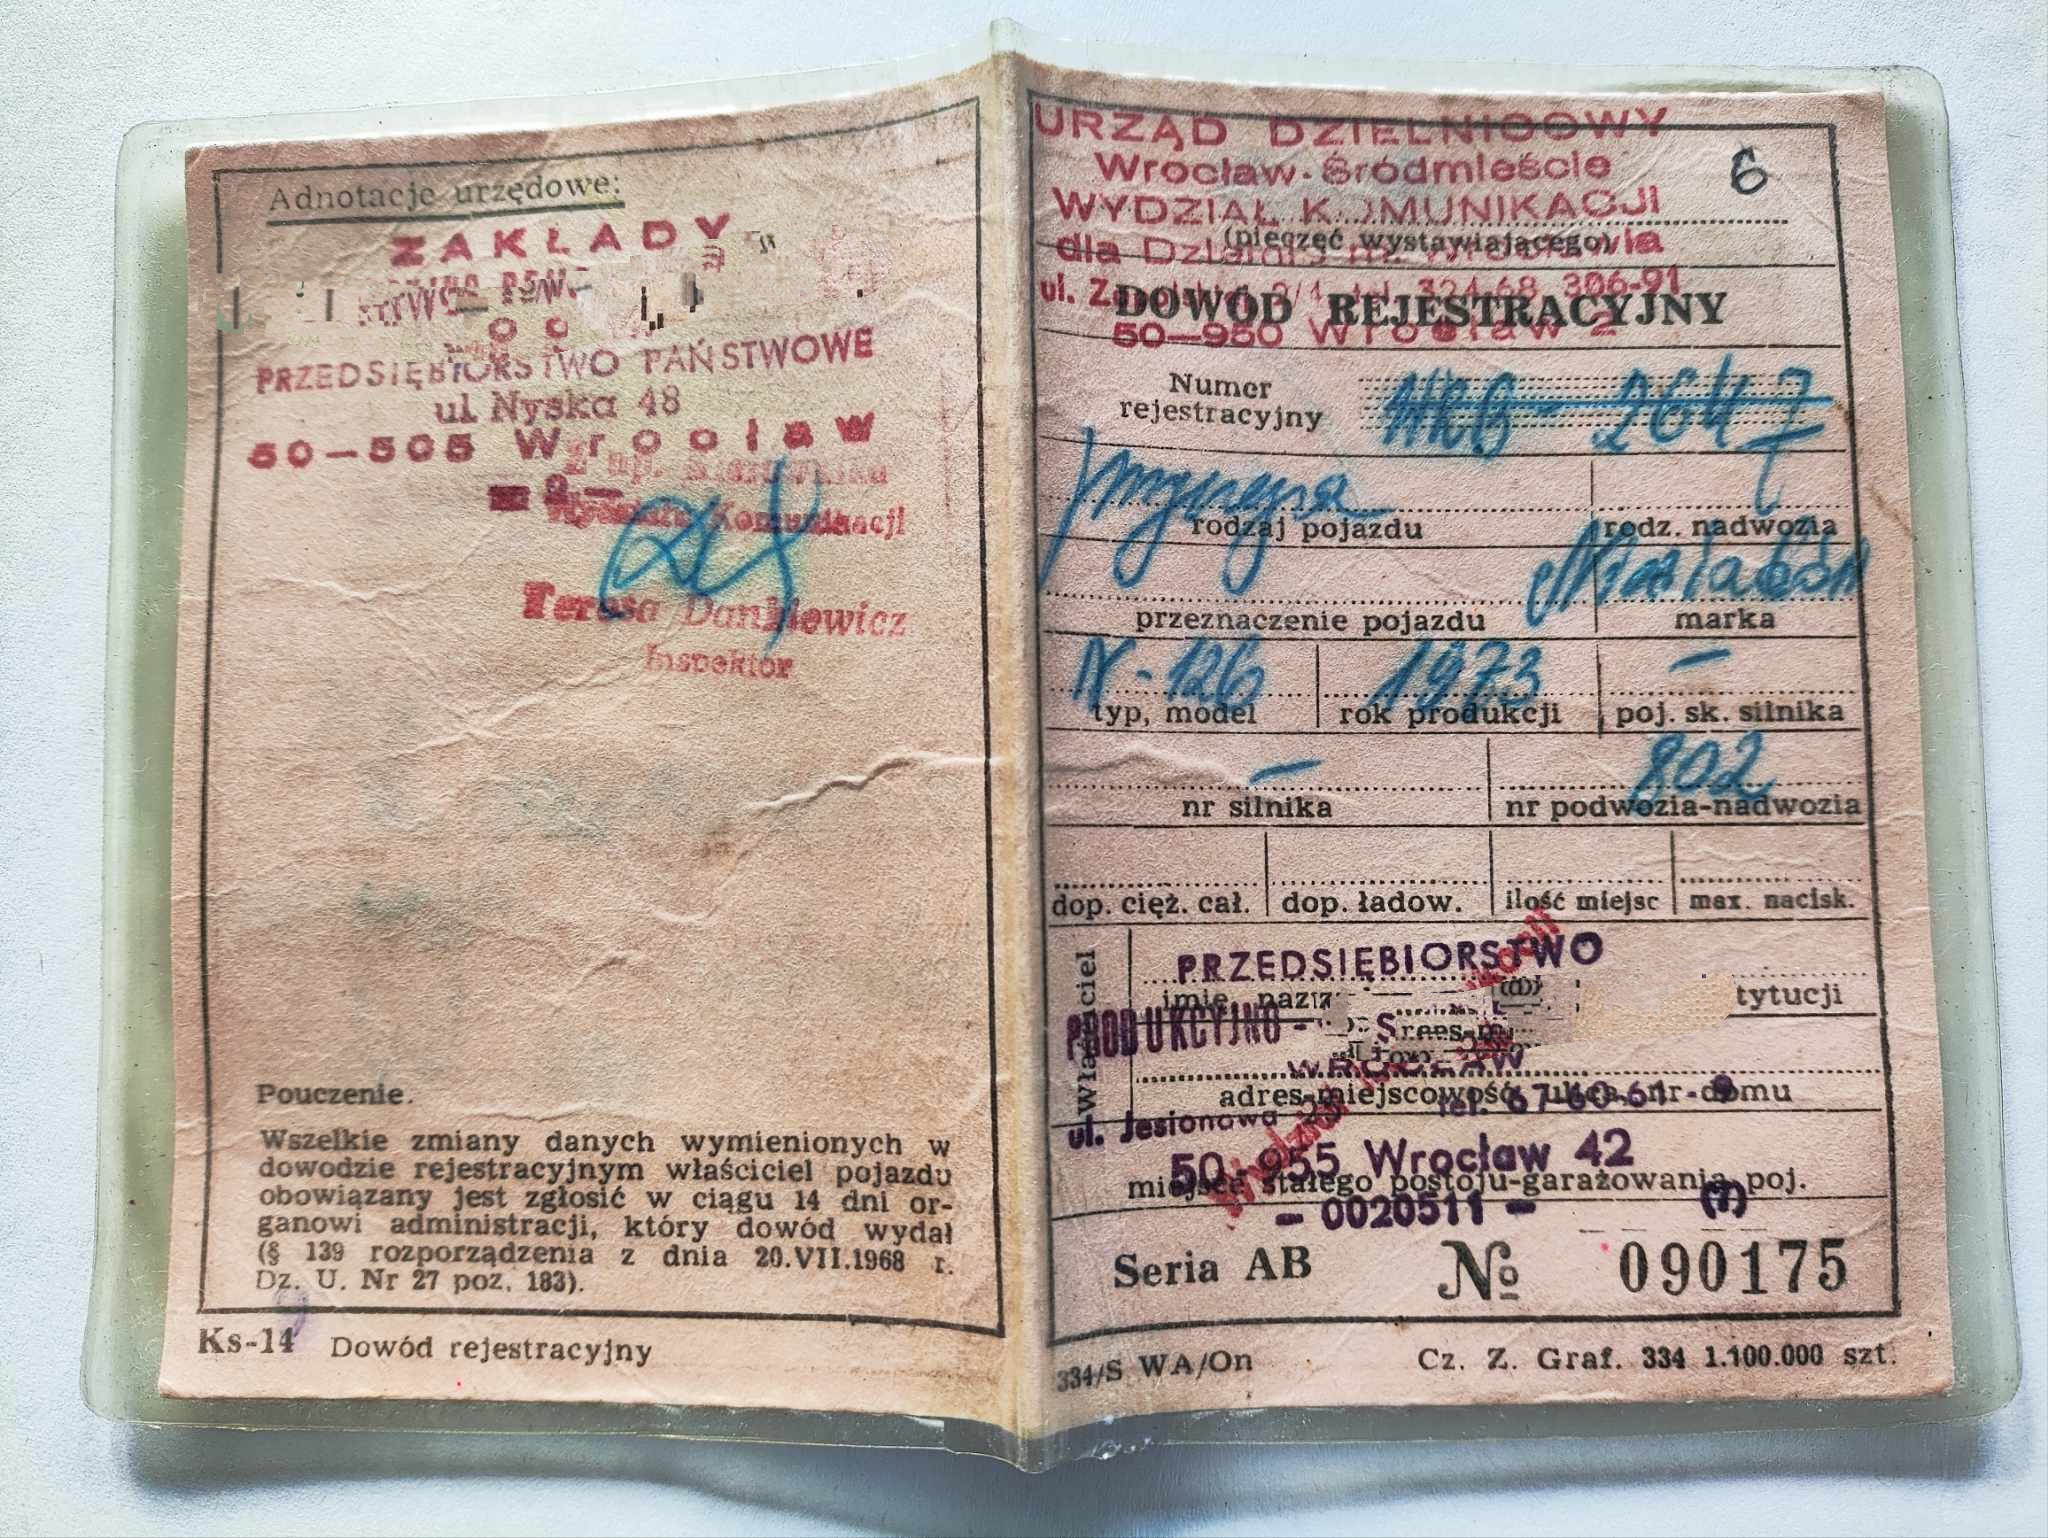 Adnotacje urzędowe:
ZAKŁADY
PRZEDSIĘBIORSTWO PAŃSTWOWE
ul Nyska 48
50-505 Wrocław
- 2 -
Z up. Kierownika
Wydziału Komunikacji
Teresa Dankiewicz
Inspektor
Pouczenie.
Wszelkie zmiany danych wymienionych w
dowodzie rejestracyjnym właściciel pojazdu
obowiązany jest zgłosić w ciągu 14 dni or-
ganowi administracji, który dowód wydał
(§ 139 rozporządzenia z dnia 20.VII.1968 r.
Dz. U. Nr 27 poz. 183).
Ks-14 Dowód rejestracyjny
URZĄD DZIELNICOWY
Wrocław-Śródmieście
6
WYDZIAŁ KOMUNIKACJI
(pieczęć wystawiającego)
dla Dzielnic m. Wrocławia
ul. 306-91
DOWÓD REJESTRACYJNY
50-950 Wrocław 2
Numer
rejestracyjny
WRB - 2647
przyczepa
rodzaj pojazdu
rodz. nadwozia
Niewiadów
przeznaczenie pojazdu
marka
N-126
1973
-
typ, model
rok produkcji
poj. sk. silnika
-
802
nr silnika
nr podwozia-nadwozia
dop. cięż. cał.
dop. ładow.
ilość miejsc
max. nacisk.
właściciel
PRZEDSIĘBIORSTWO
PRODUKCYJNO -
WROCŁAW
adres-miejscowość, ulica, nr domu
ul. Jesionowa tel. 67-60-61-9
50-955 Wrocław 42
miejsce stałego postoju-garażowania poj.
- 0020511 - (7)
Seria AB № 090175
334/S WA/On
Cz. Z. Graf. 334 1.100.000 szt.